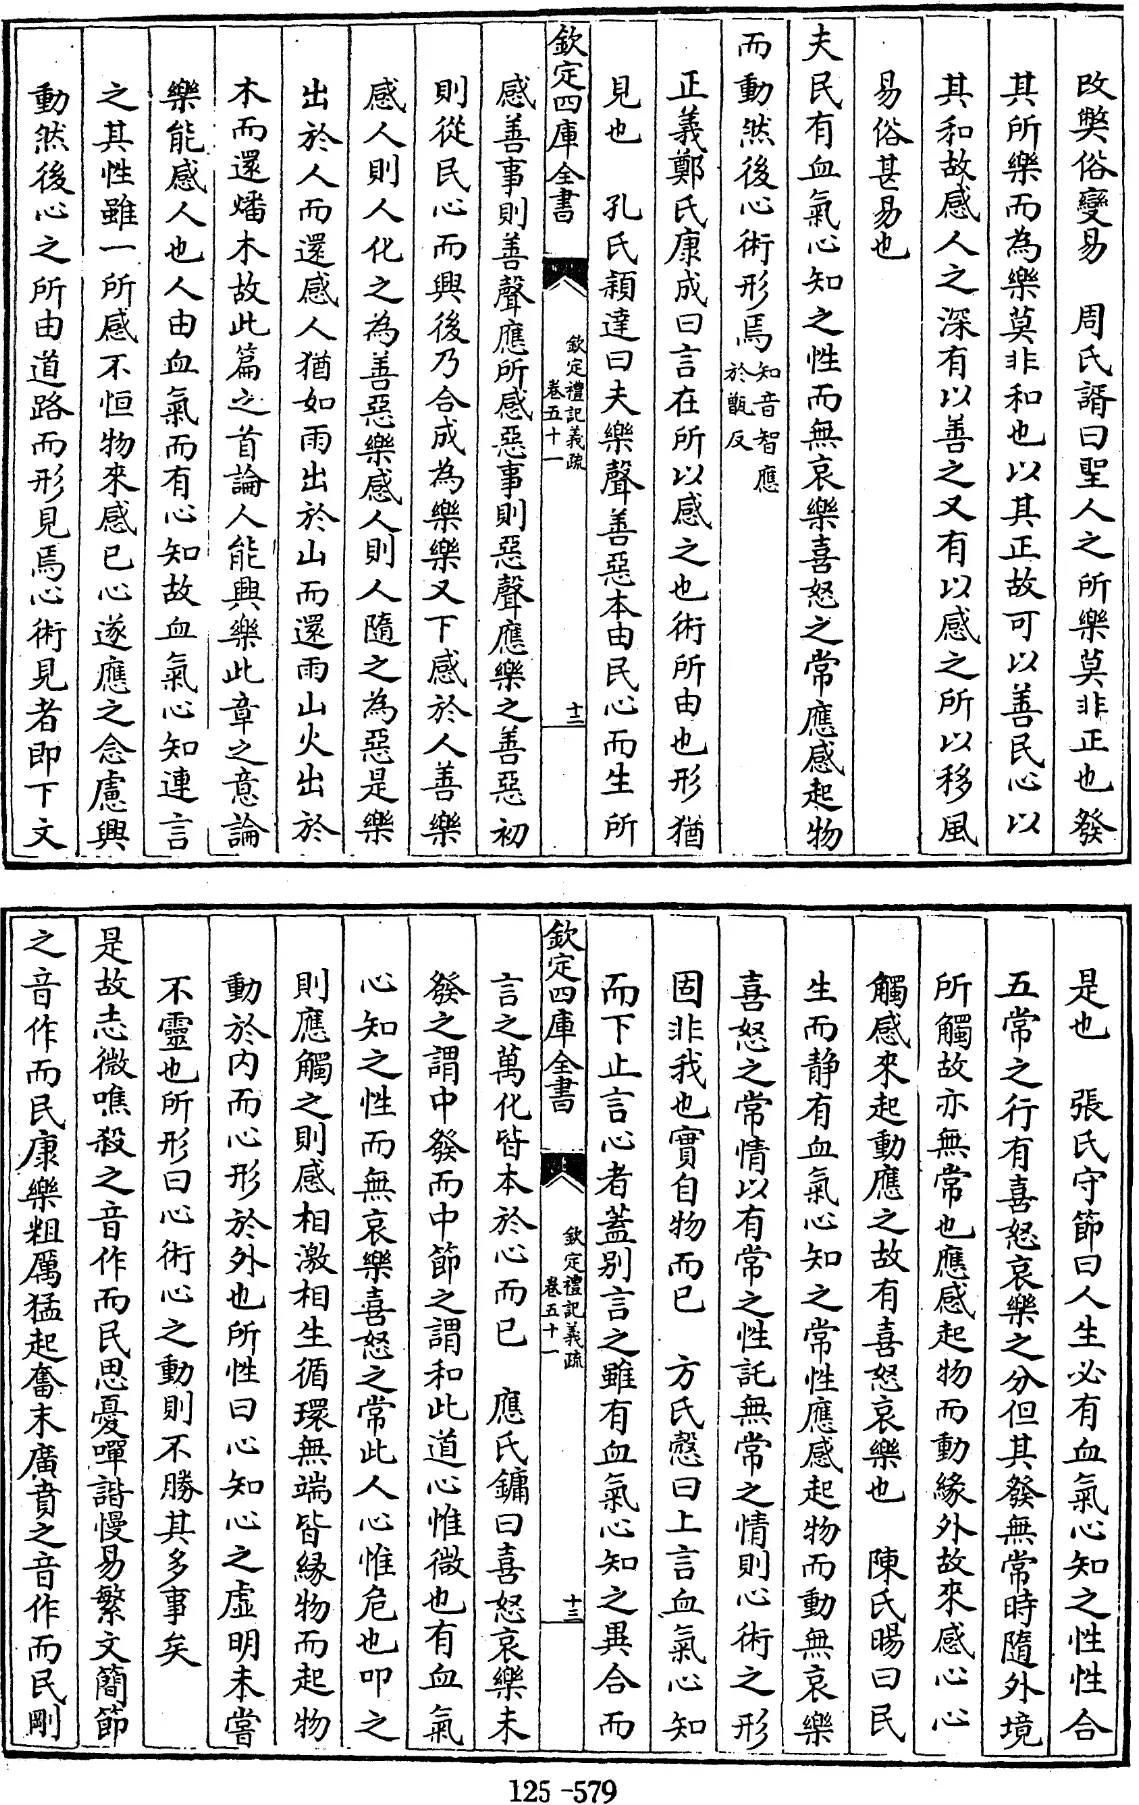 改獘俗變易　周氏諝曰聖人之所樂莫非正也發
其所樂而為樂莫非和也以其正故可以善民心以
其和故感人之深有以善之又有以感之所以移風
易俗甚易也
夫民有血氣心知之性而無哀樂喜怒之常應感起物
而動然後心術形焉知音智應於甑反
正義鄭氏康成曰言在所以感之也術所由也形猶
見也　孔氏穎達曰夫樂聲善惡本由民心而生所
欽定四庫全書
欽定禮記義疏
卷五十一
十二
感善事則善聲應所感惡事則惡聲應樂之善惡初
則從民心而興後乃合成為樂樂又下感於人善樂
感人則人化之為善惡樂感人則人隨之為惡是樂
出於人而還感人猶如雨出於山而還雨山火出於
木而還燔木故此篇之首論人能興樂此章之意論
樂能感人也人由血氣而有心知故血氣心知連言
之其性雖一所感不恒物來感已心遂應之念慮興
動然後心之所由道路而形見焉心術見者即下文
是也　張氏守節曰人生必有血氣心知之性性合
五常之行有喜怒哀樂之分但其發無常時隨外境
所觸故亦無常也應感起物而動緣外故來感心心
觸感來起動應之故有喜怒哀樂也　陳氏暘曰民
生而静有血氣心知之常性應感起物而動無哀樂
喜怒之常情以有常之性託無常之情則心術之形
固非我也實自物而已　方氏慤曰上言血氣心知
而下止言心者蓋别言之雖有血氣心知之異合而
欽定四庫全書
欽定禮記義疏
卷五十一
十三
言之萬化皆本於心而已　應氏鏞曰喜怒哀樂未
發之謂中發而中節之謂和此道心惟微也有血氣
心知之性而無哀樂喜怒之常此人心惟危也叩之
則應觸之則感相激相生循環無端皆緣物而起物
動於内而心形於外也所性曰心知心之虛明未嘗
不靈也所形曰心術心之動則不勝其多事矣
是故志微噍殺之音作而民思憂嘽諧慢易繁文簡節
之音作而民康樂粗厲猛起奮末廣賁之音作而民剛
125-579